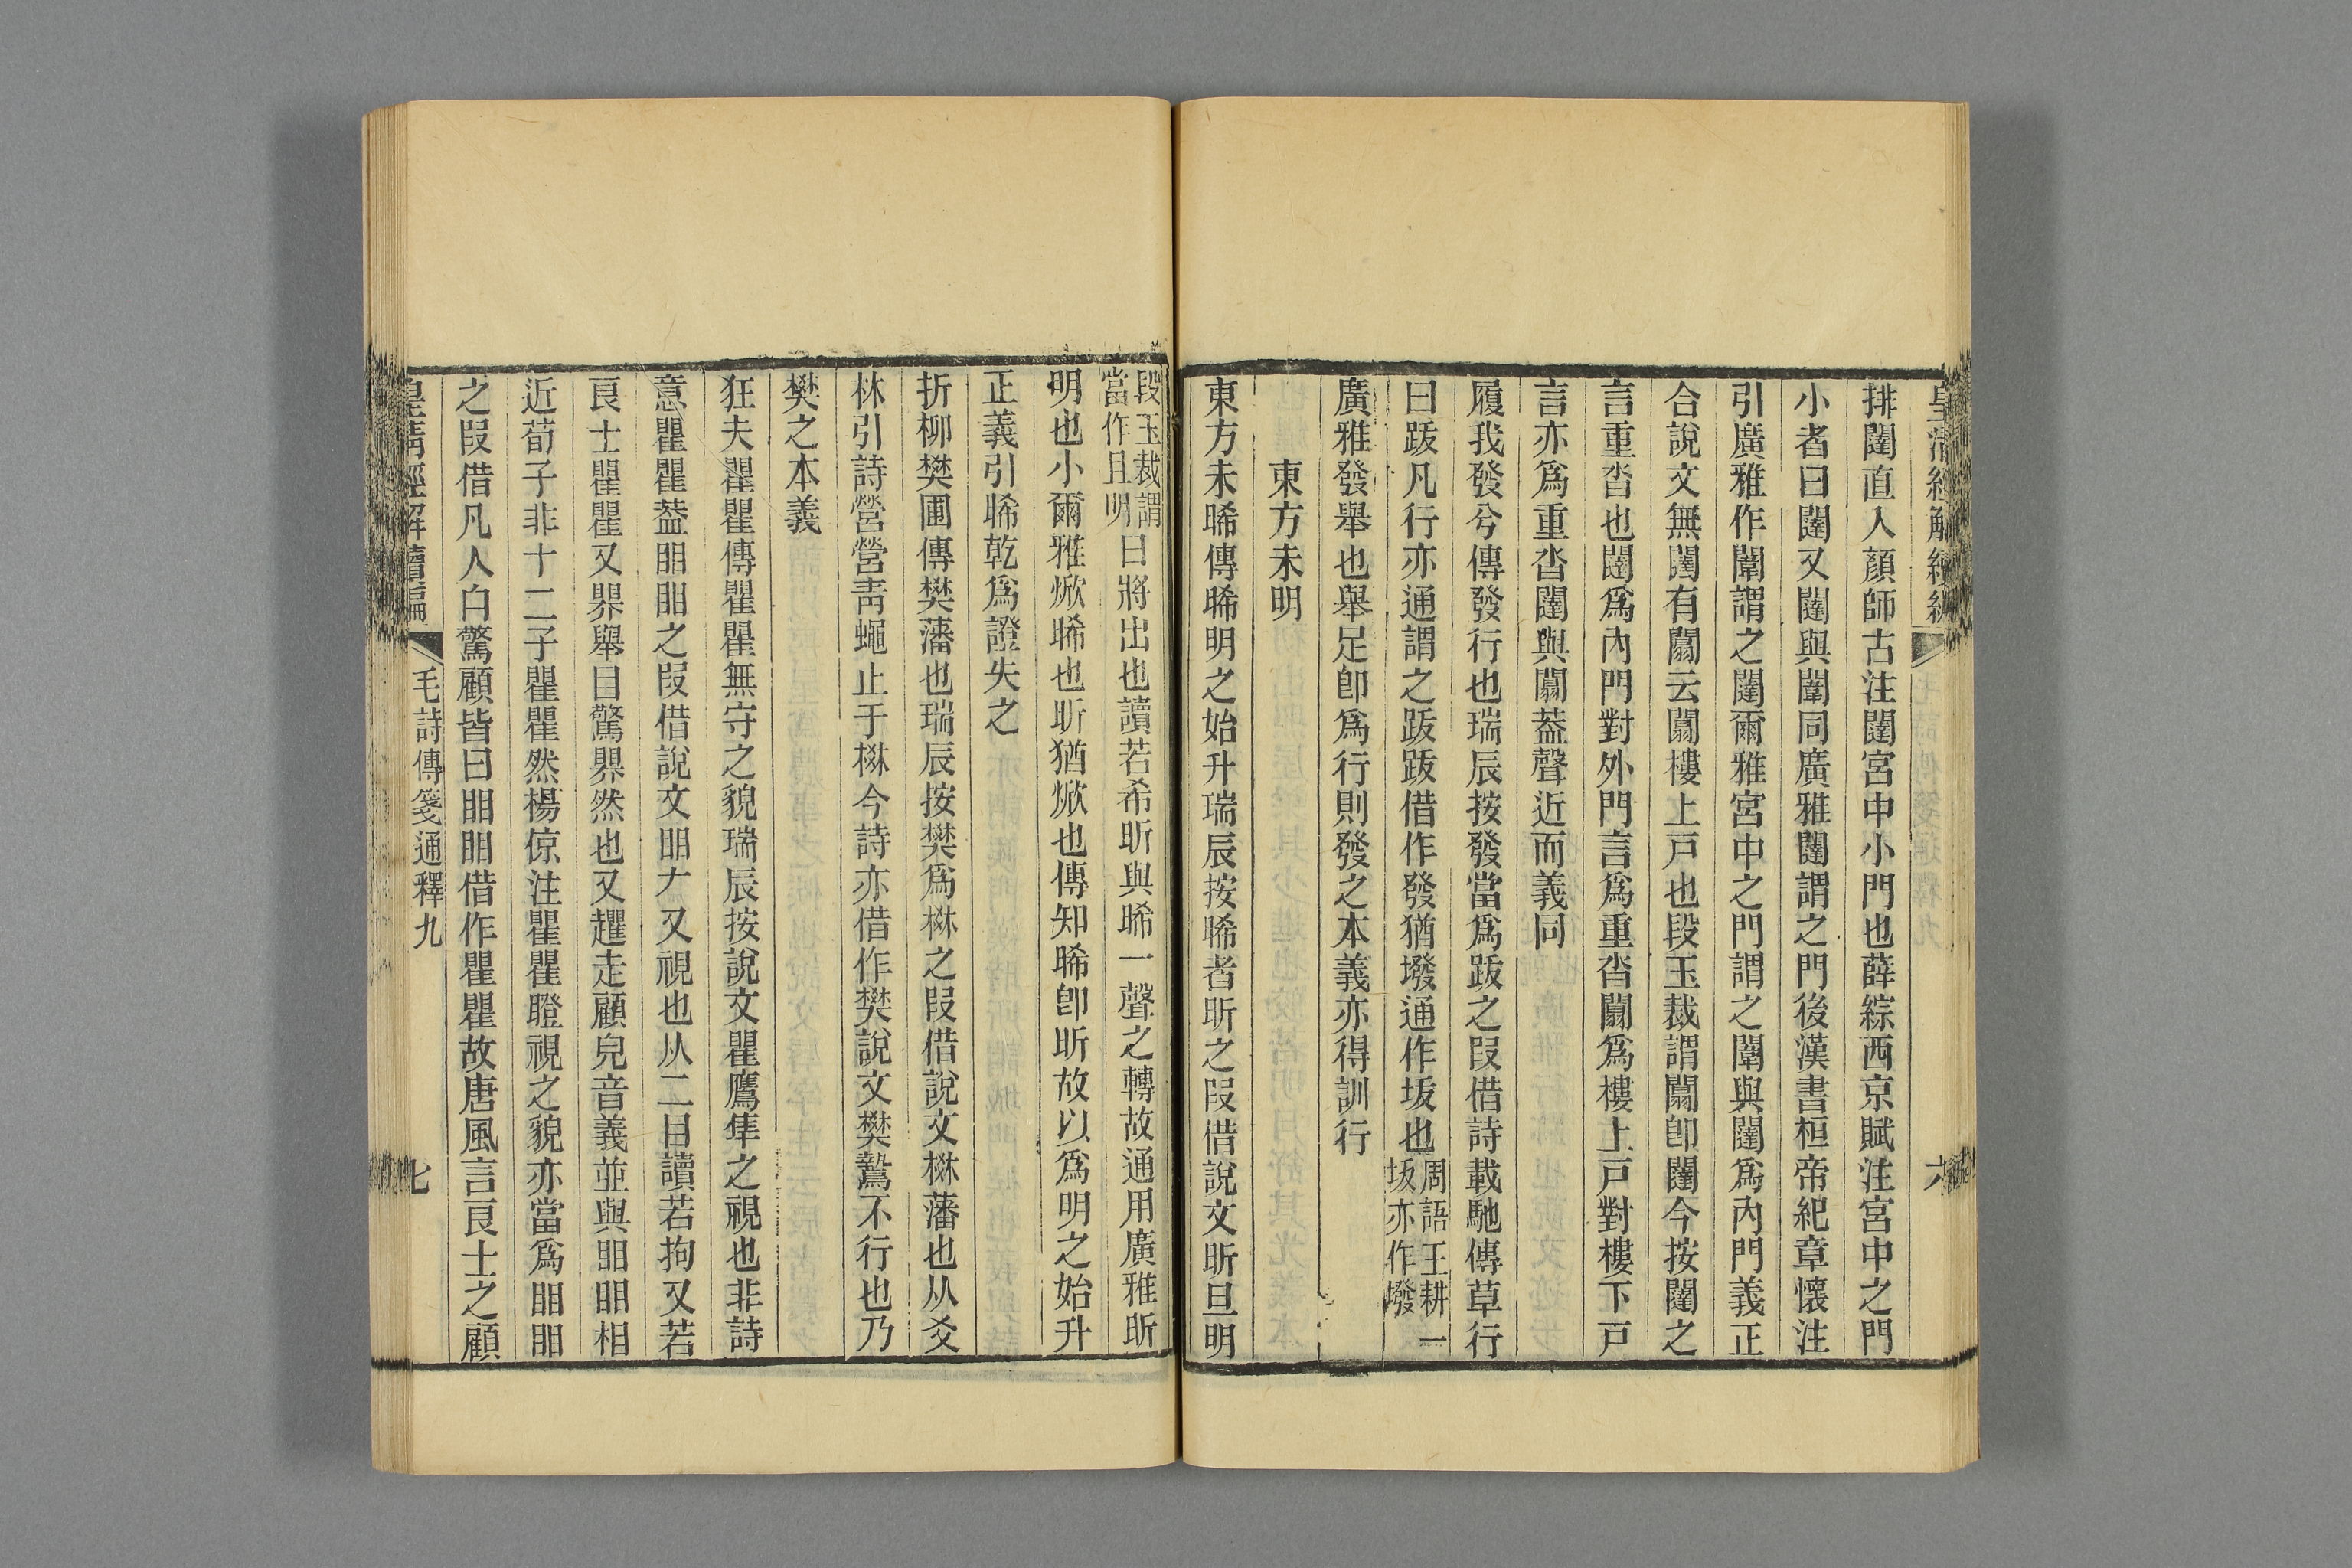 皇清經解續編
六
排闥直入顏師古注闥宮中小門也薛綜西京賦注宮中之門
小者曰闥又闥與闈同廣雅闥謂之門後漢書桓帝紀章懷注
引廣雅作闈謂之闥爾雅宮中之門謂之闈與闥爲內門義正
合說文無闥有闒云闒樓上戸也段玉裁謂闒卽闥今按闥之
言重沓也闥爲內門對外門言爲重沓闒爲樓上戸對樓下戸
言亦爲重沓闥與闒葢聲近而義同
履我發兮傳發行也瑞辰按發當爲跋之叚借詩載馳傳草行
曰跋凡行亦通謂之跋跋借作發猶墢通作坺也周語王耕一
坺亦作墢
廣雅發舉也舉足卽爲行則發之本義亦得訓行
東方未明
東方未晞傳晞明之始升瑞辰按晞者昕之叚借說文昕旦明
段玉裁謂
當作且明
日將出也讀若希昕與晞一聲之轉故通用廣雅昕
明也小爾雅焮晞也昕猶焮也傳知晞卽昕故以爲明之始升
正義引晞乾爲證失之
折柳樊圃傳樊藩也瑞辰按樊爲棥之叚借說文棥藩也从爻
林引詩營營靑蠅止于棥今詩亦借作樊說文樊鷙不行也乃
樊之本義
狂夫瞿瞿傳瞿瞿無守之貌瑞辰按說文瞿鷹隼之視也非詩
意瞿瞿葢䀠䀠之叚借說文䀠𠂇又視也从二目讀若拘又若
良士瞿瞿又界舉目驚界然也又趯走顧皃音義並與䀠䀠相
近荀子非十二子瞿瞿然楊倞注瞿瞿瞪視之貌亦當爲䀠䀠
之叚借凡人白驚顧皆曰䀠䀠借作瞿瞿故唐風言良士之顧
皇淸經解續編
毛詩傳箋通釋九
七